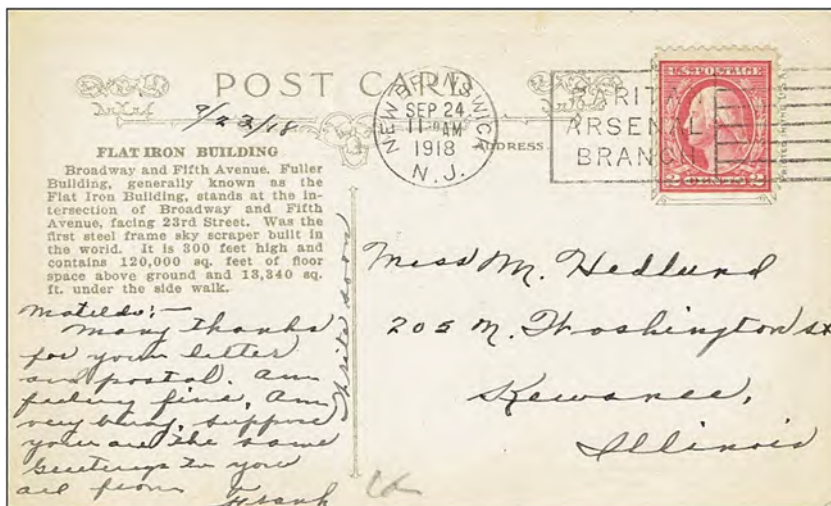 POST CARD
9/23/18
NEW BRUNSWICK
SEP 24
11 AM
1918
N.J.
RARIT
ARSENAL
BRANCH
U.S. POSTAGE
2 CENTS 2
ADDRESS
FLAT IRON BUILDING
Broadway and Fifth Avenue. Fuller
Building, generally known as the
Flat Iron Building, stands at the in-
tersection of Broadway and Fifth
Avenue, facing 23rd Street. Was the
first steel frame sky scraper built in
the world. It is 300 feet high and
contains 120,000 sq. feet of floor
space above ground and 13,340 sq.
ft. under the side walk.
Matilda:—
Many thanks
for your letter
and postal. Am
feeling fine, Am
very busy, suppose
you are the same
Greetings to you
all from
Frank
Write soon
Miss M. Hedlund
205 N. Washington st
Kewanee,
Illinois